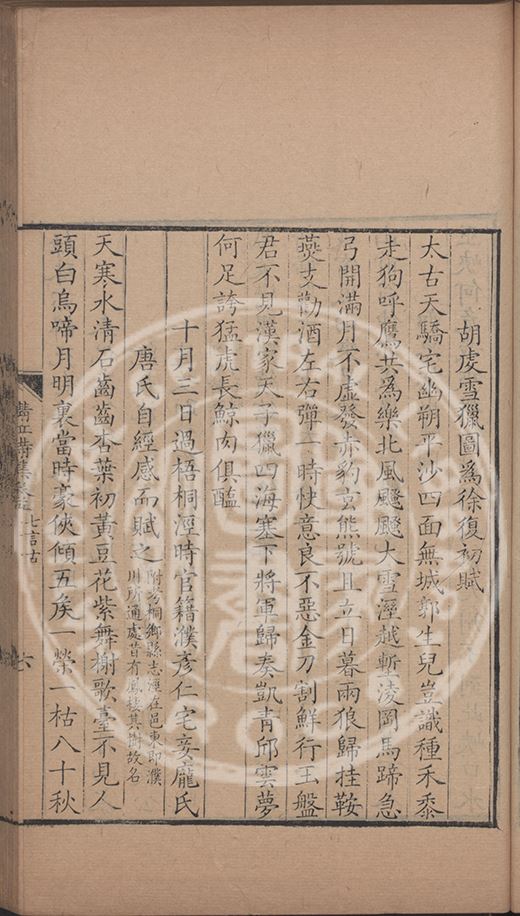 胡虔雪獵圖為徐復初賦
太古天驕宅幽朔平沙四面無城郭生兒豈識種禾黍
走狗呼鷹共為樂北風颼颼大雪溼越塹淩岡馬蹄急
弓開滿月不虛發赤豹玄熊號且立日暮兩狼歸挂鞍
燕支勸酒左右彈一時快意良不惡金刀割鮮行玉盤
君不見漢家天子獵四海塞下將軍歸奏凱青邱雲夢
何足誇猛虎長鯨肉俱醢
十月三日過梧桐涇時官籍濮彥仁宅妾龎氏
唐氏自經感而賦之附考桐鄉縣志涇在邑東即濮
川所通處昔有鳳棲其樹故名
天寒水清石齒齒杏葉初黃豆花紫舞榭歌臺不見人
頭白烏啼月明裏當時豪俠傾五矦一榮一枯八十秋
七言古
六